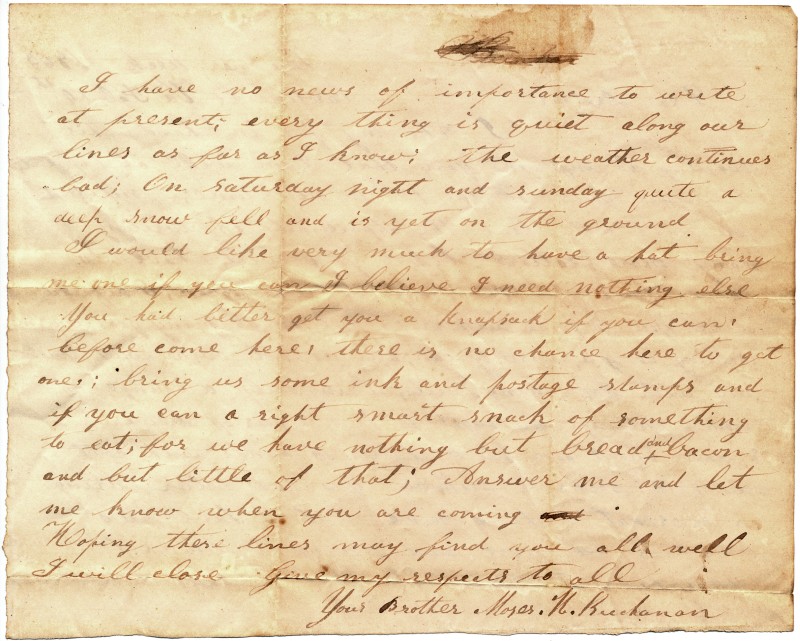 I have no news of importance to write
at present; every thing is quiet along our
lines as far as I know; the weather continues
bad; On saturday night and sunday quite a
deep snow fell and is yet on the ground
I would like very much to have a hat bring
me one if you can I believe I need nothing else
You had better get you a knapsack if you can
before come here; there is no chance here to get
one; bring us some ink and postage stamps and
if you can a right smart snack of something
to eat; for we have nothing but bread and bacon
and but little of that; Answer me and let
me know when you are coming and
Hoping these lines may find you all well
I will close Give my respects to all
Your Brother Moses. H. Buchanan